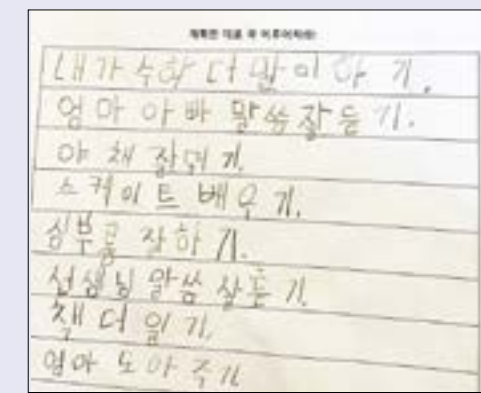 계획한 대로 꼭 이루어져라!
내가 수학 더 많이 하기.
엄마 아빠 말씀 잘 듣기.
야채 잘 먹기.
스케이트 배우기.
심부름 잘하기.
선생님 말씀 잘 듣기.
책 더 읽기.
엄마 도아주기